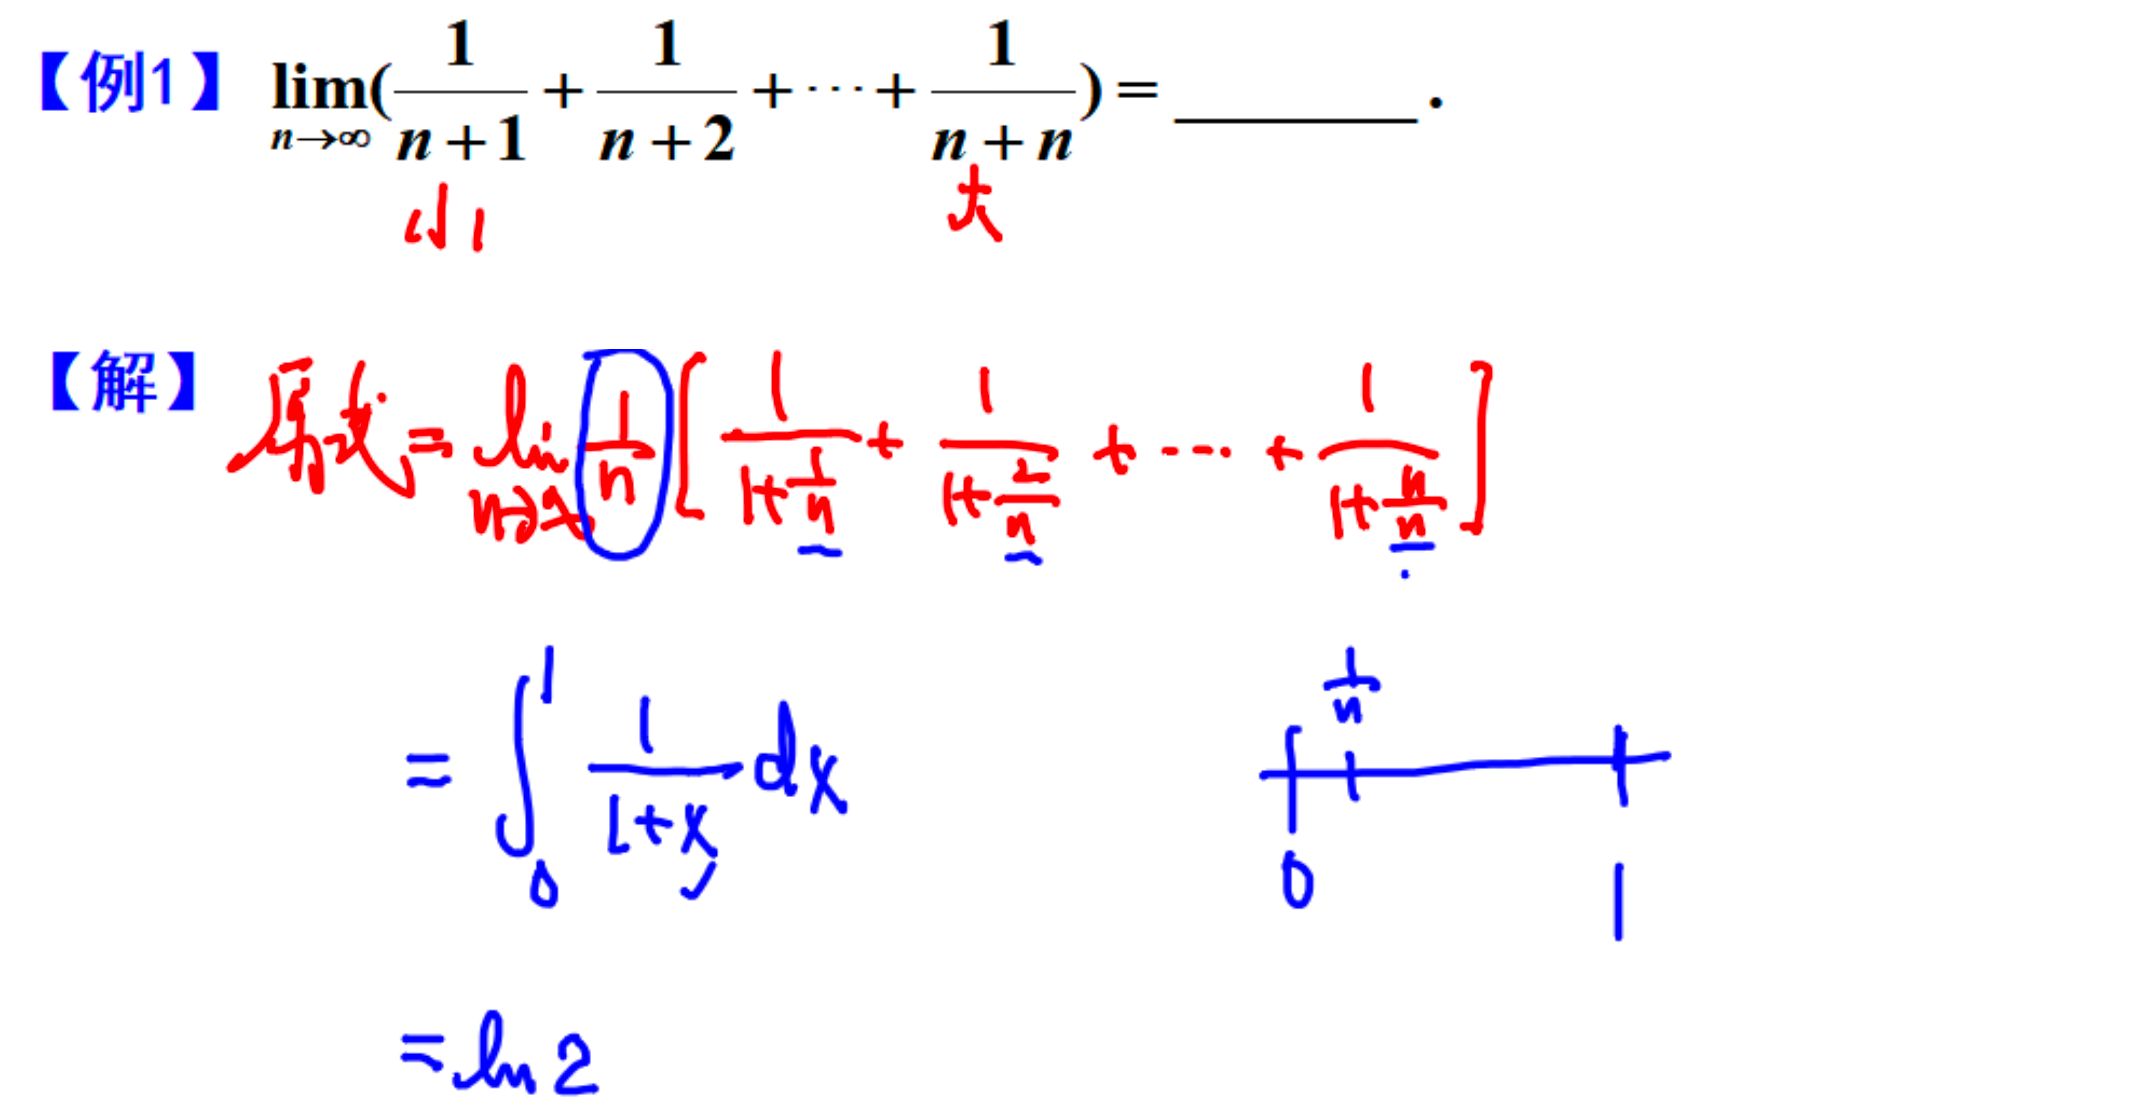 【例1】 lim_{n→∞}(1/(n+1) + 1/(n+2) + ⋯ + 1/(n+n)) = ______.
小 大
【解】 原式 = lim_{n→∞} 1/n [1/(1+1/n) + 1/(1+2/n) + ⋯ + 1/(1+n/n)]
= ∫_0^1 1/(1+x) dx
1/n
0 1
= ln 2